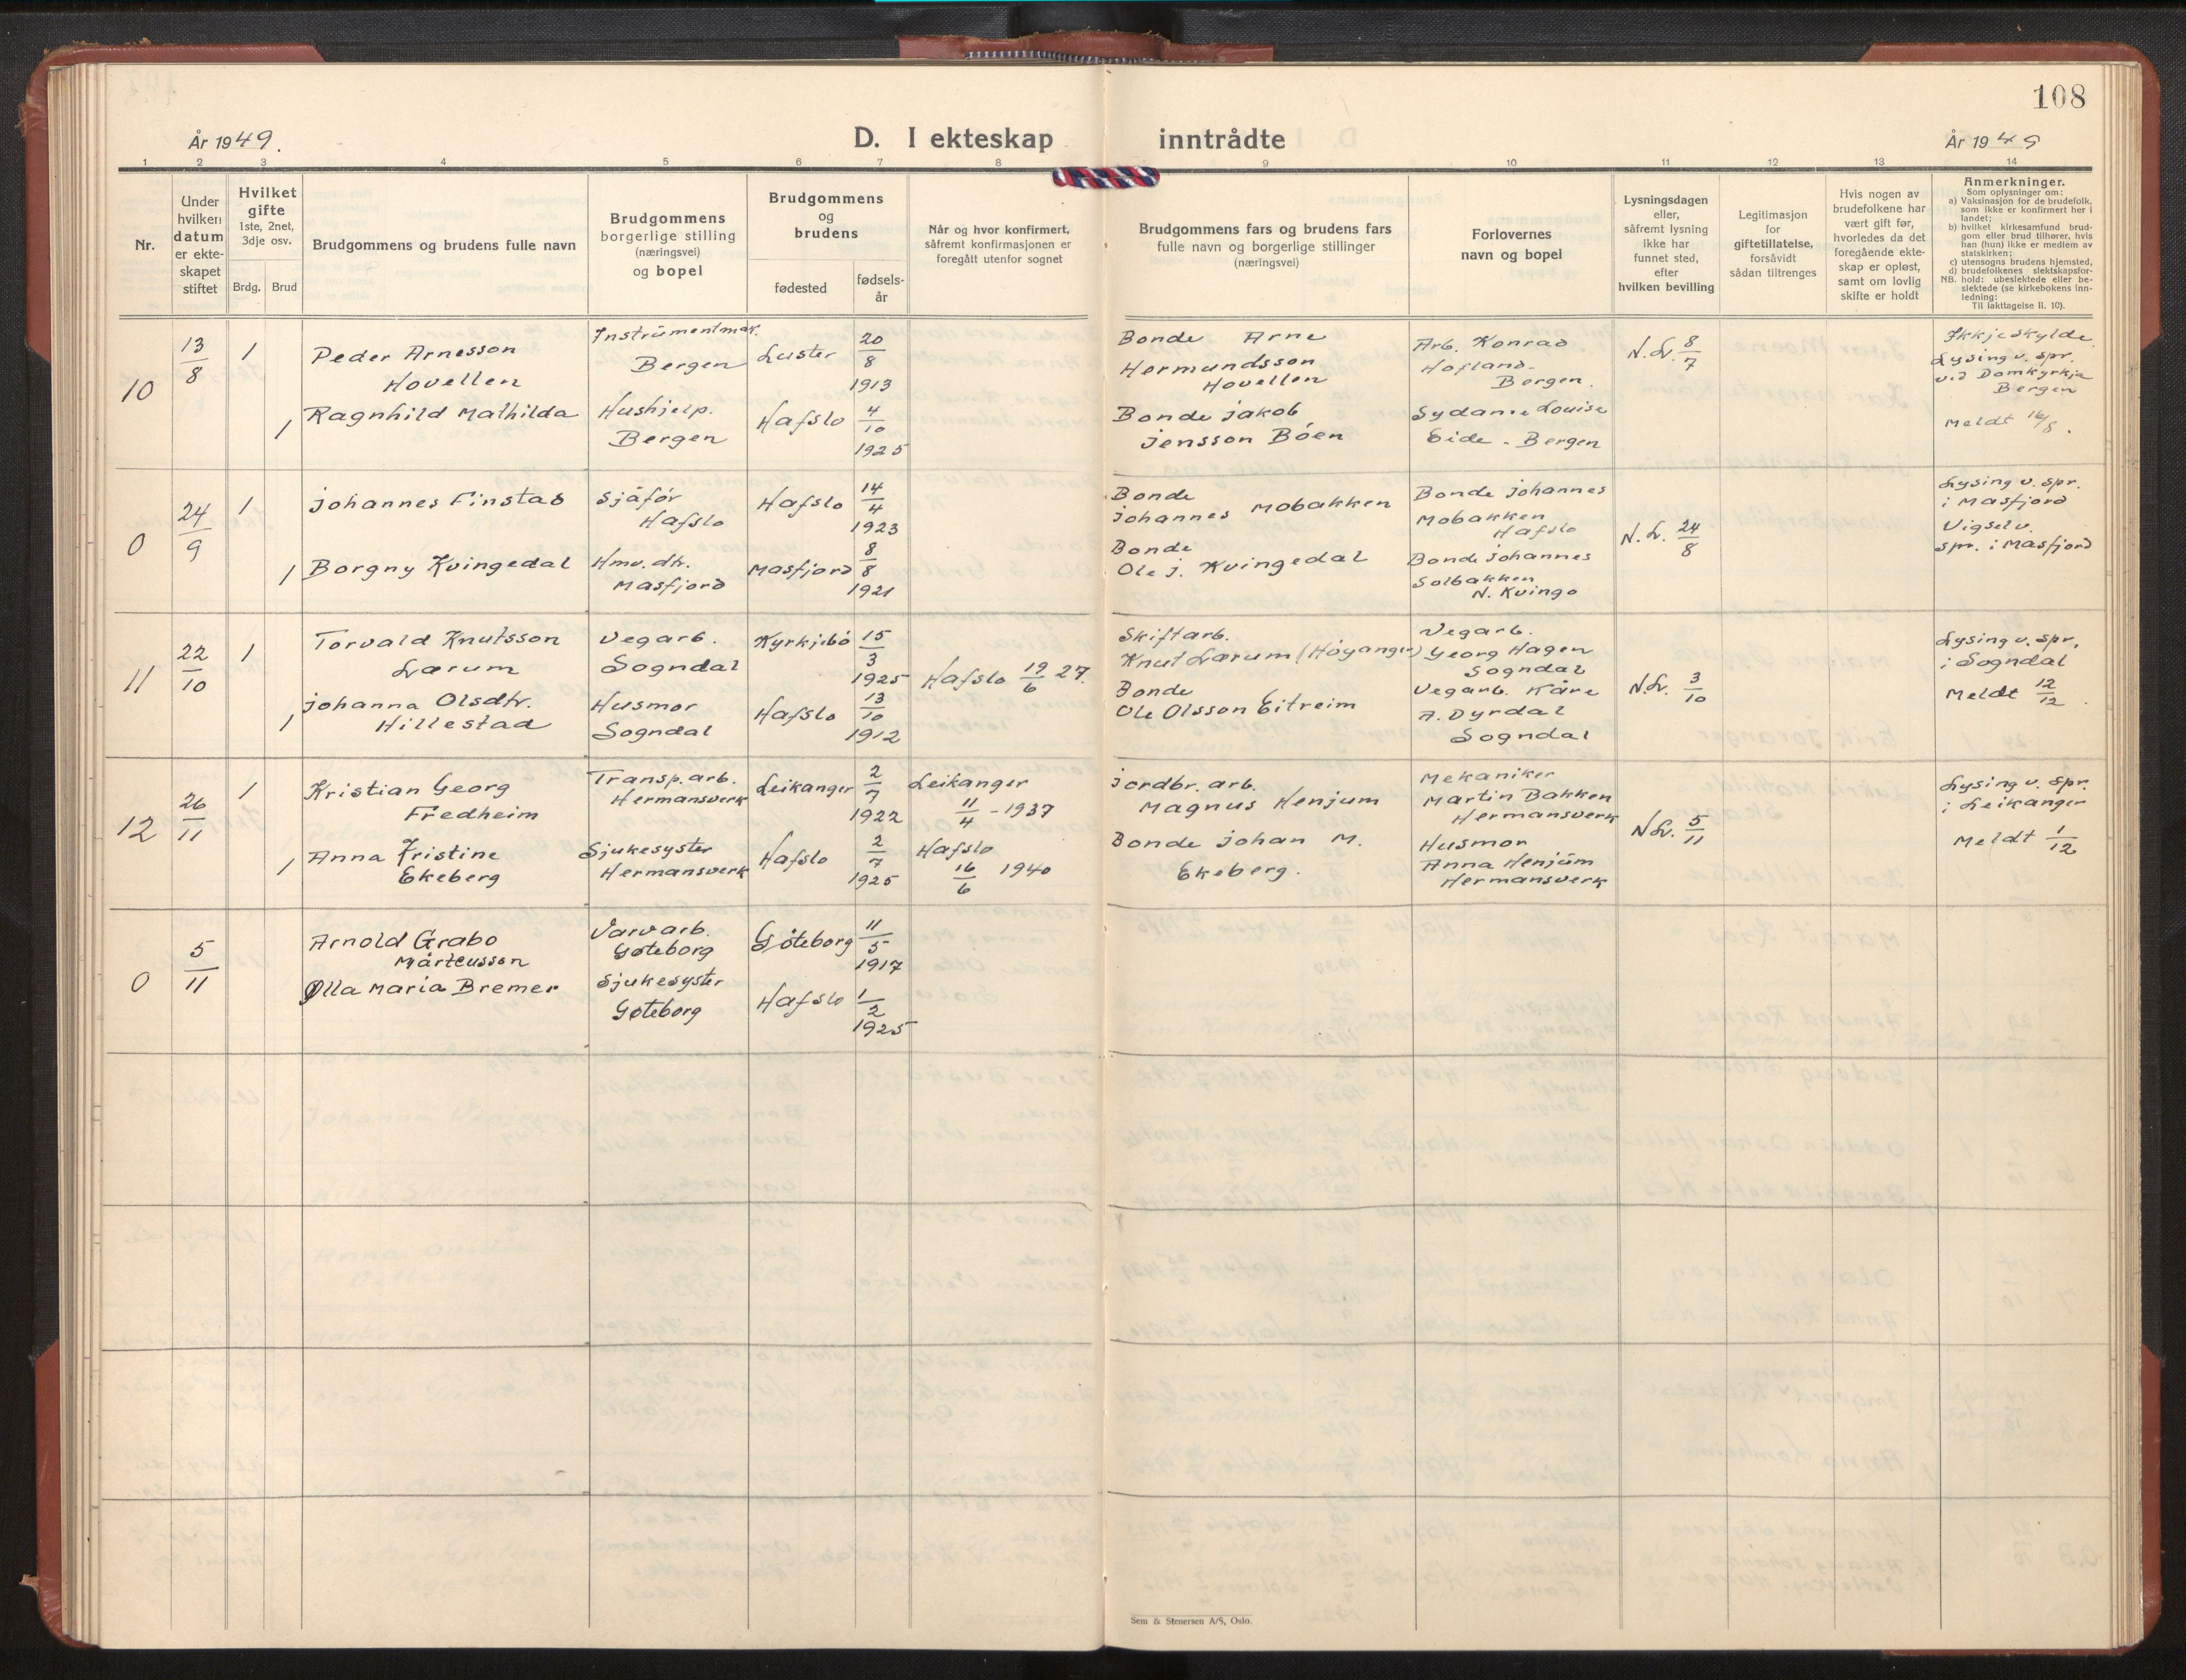 108
År 1949.
D. I ekteskap inntrådte
År 1949
1 2 3 4 5 6 7 8 9 10 11 12 13 14
Nr.
Under
hvilken
datum
er ekte-
skapet
stiftet
Hvilket
gifte
1ste, 2net,
3dje osv.
Brdg. Brud
Brudgommens og brudens fulle navn
Brudgommens
borgerlige stilling
(næringsvei)
og bopel
Brudgommens
og
brudens
fødested
fødsels-
år
Når og hvor konfirmert,
såfremt konfirmasjonen er
foregått utenfor sognet
Brudgommens fars og brudens fars
fulle navn og borgerlige stillinger
(næringsvei)
Forlovernes
navn og bopel
Lysningsdagen
eller,
såfremt lysning
ikke har
funnet sted,
efter
hvilken bevilling
Legitimasjon
for
giftetillatelse,
forsåvidt
sådan tiltrenges
Hvis nogen av
brudefolkene har
vært gift før,
hvorledes da det
foregående ekte-
skap er opløst,
samt om lovlig
skifte er holdt
Anmerkninger.
Som oplysninger om:
a) Vaksinasjon for de brudefolk,
som ikke er konfirmert her i
landet;
b) hvilket kirkesamfund brud-
gom eller brud tilhører, hvis
han (hun) ikke er medlem av
statskirken;
c) utensogns brudens hjemsted,
d) brudefolkenes slektskapsfor-
NB. hold: ubeslektede eller be-
slektede (se kirkebokens inn-
ledning:
Til iakttagelse II. 10).
10
13/8
1
Peder Arnesson
Hovellen
Instrumentmak.
Bergen
Luster
20/8
1913
Bonde Arne
Hermundsson
Hovellen
Arb. Konrad
Bergen.
N.L. 8/7
Ikkje skylde
Lysing v. spr.
ved Domkyrkja
Bergen
Meldt 16/8.
1
Ragnhild Mathilda
Hushjelp.
Bergen
Hafslo
4/10
1925
Bonde Jakob
Jensson Bøen
Louise
Eide - Bergen
0
24/9
1
Johannes Finstad
Sjåfør
Hafslo
Hafslo
14/4
1923
Bonde
Johannes Mobakken
Bonde Johannes
Mobakken
Hafslo
N.L. 24/8
Lysing v. spr.
i Masfjord
Vigsel v.
spr. i Masfjord
1
Borgny Kvingedal
Hmv. dtr.
Masfjord
Masfjord
8/8
1921
Bonde
Ole J. Kvingedal
Bonde Johannes
Solbakken
N. Kvingo
11
22/10
1
Torvald Knutsson
Lærum
Vegarb.
Sogndal
Kyrkjebø
15/3
1925
Skiftarb.
Knut Lærum (Høyanger)
Vegarb.
Georg Hagen
Sogndal
N.L. 3/10
Lysing v. spr.
i Sogndal
Meldt 12/12.
1
Johanna Olsdtr.
Hillestad
Husmor
Sogndal
Hafslo
13/10
1912
Hafslo 19/6 27.
Bonde
Ole Olsson Eitreim
Vegarb. Kåre
A. Dyrdal
Sogndal
12
26/11
1
Kristian Georg
Fredheim
Transp. arb.
Hermansverk
Leikanger
2/7
1922
Leikanger
11/4 - 1937
Jordbr. arb.
Magnus Henjum
Mekaniker
Martin Bakken
Hermansverk
N.L. 5/11
Lysing v. spr.
i Leikanger
Meldt 1/12
1
Anna Kristine
Ekeberg
Sjukesyster
Hermansverk
Hafslo
2/7
1925
Hafslo
16/6 1940
Bonde Johan M.
Ekeberg.
Husmor
Anna Henjum
Hermansverk
0
5/11
Arnold Grabo
Mårtensson
Varvarb.
Gøteborg
Gøteborg
11/5
1917
Olla Maria Bremer
Sjukesyster
Gøteborg
Hafslo
1/2
1925
Sem & Stenersen A/S, Oslo.